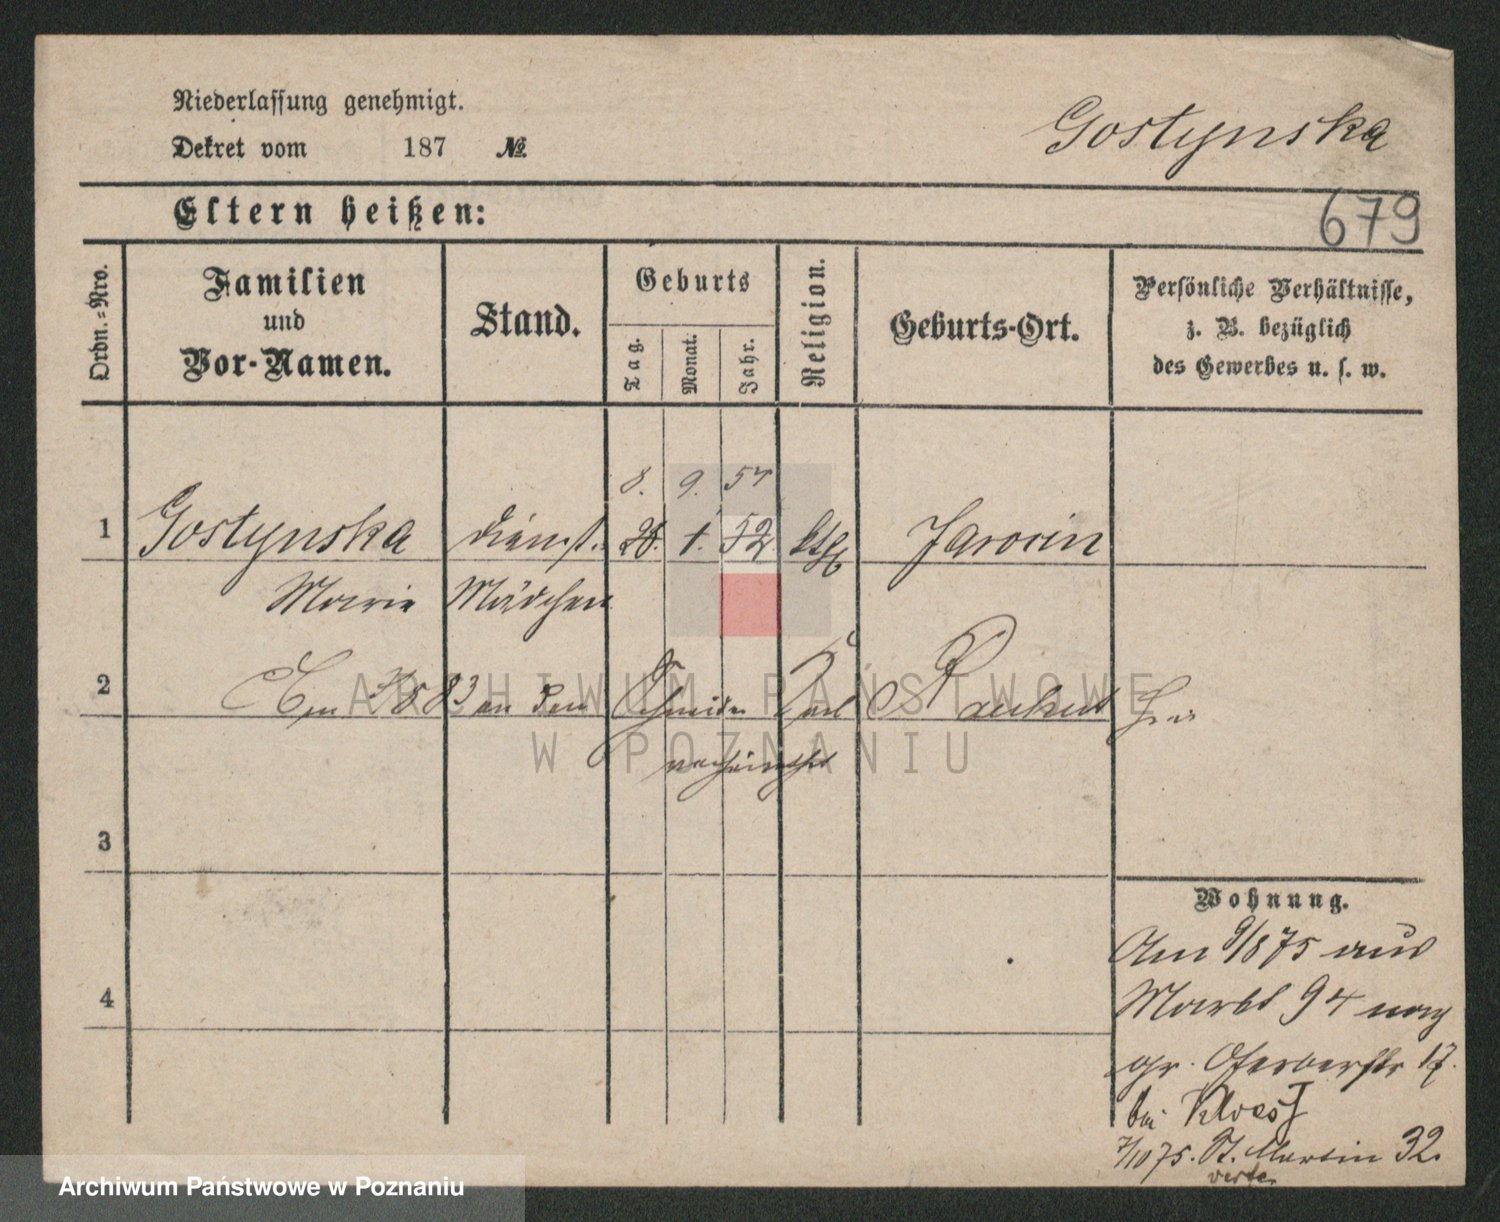 Niederlassung genehmigt.
Dekret vom 187 №
Gostynska
Eltern heißen:
679
Ordn.=Nro.
Familien
und
Vor-Namen.
Stand.
Geburts
Tag.
Monat.
Jahr.
Religion.
Geburts-Ort.
Persönliche Verhältnisse,
z. B. bezüglich
des Gewerbes u. s. w.
8. 9. 54
1 Gostynska Dienst- 28. 1. 52 Jarocin
Marie Mädchen
2 1883 an den Schneider Carl
ARCHIWUM PAŃSTWOWE
W POZNANIU
3
Wohnung.
Am 9/8 75 aus
Markt 94 nach
4
gr. Gerberstr 17.
bei
7/10 75. St. Martin 32.
verte
Archiwum Państwowe w Poznaniu